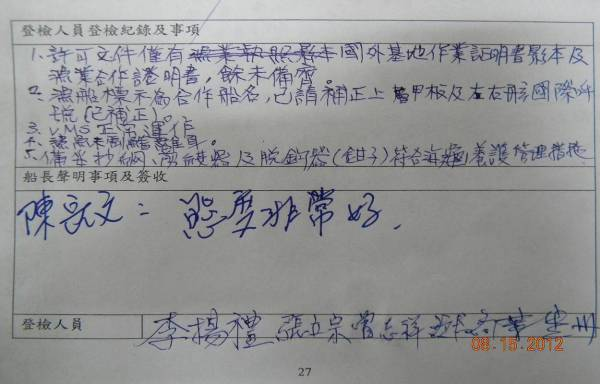 登檢人員登檢紀錄及事項
1. 許可文件僅有漁業執照影本國外基地作業証明書影本及
漁業合作證明書，餘未備齊。
2. 漁船標示為合作船名，已請補正上甲板及左右舷國際呼
號（已補正）。
3. VMS正常運作
4.
5. 備妥抄網、剪線器及脫鉤器（鉗子）符合海龜養護管理措施
船長聲明事項及簽收
陳 文： 態度非常好.
登檢人員
李楊禮 張立宗 曾志祥
08.15.2012
27